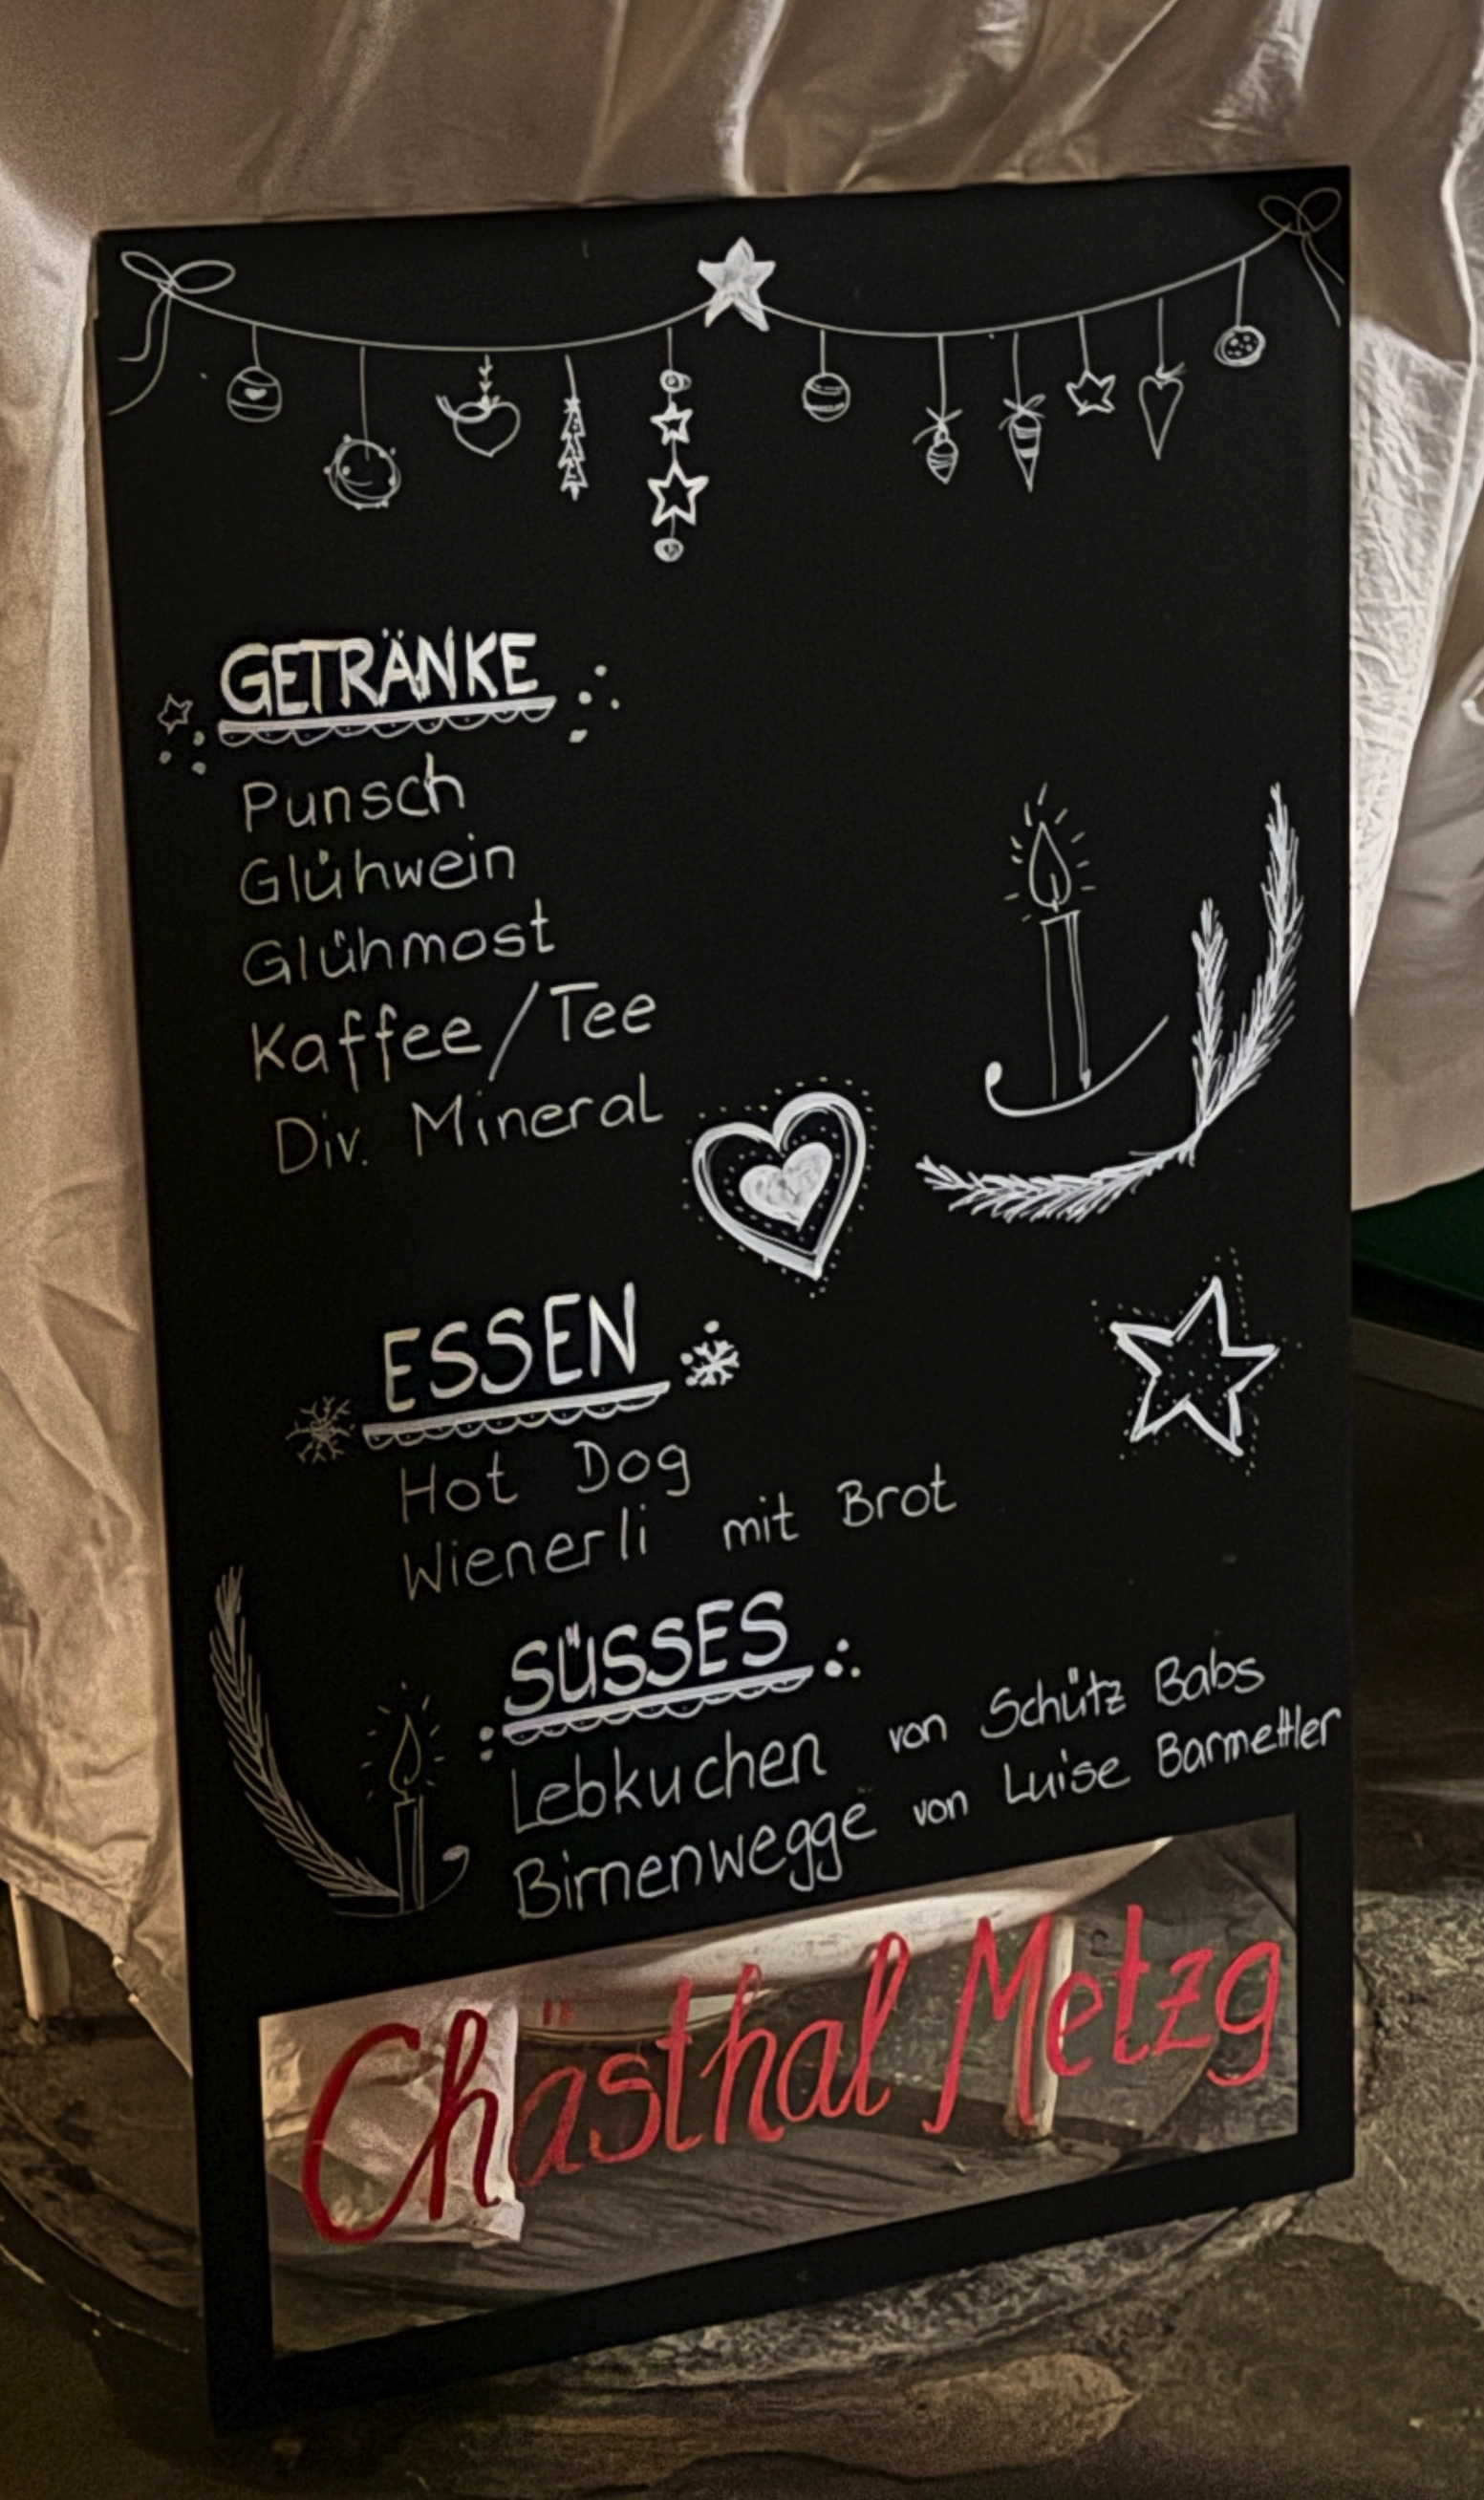 GETRÄNKE
Punsch
Glühwein
Glühmost
Kaffee/Tee
Div. Mineral
ESSEN
Hot Dog
Wienerli mit Brot
SÜSSES
Lebkuchen von Schütz Babs
Birnenwegge von Luise Barmettler
Chästhal Metzg